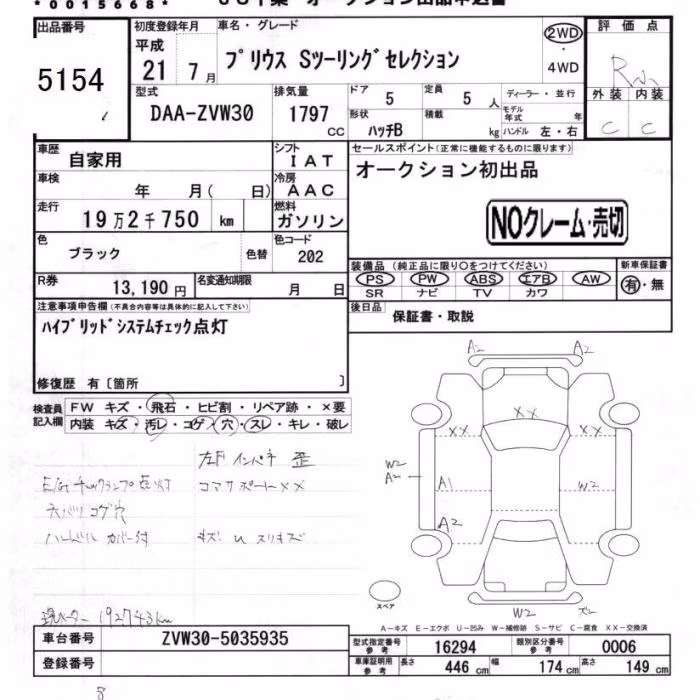 *0015668*
出品番号
5154
初度登録年月
平成
21 7月
車名・グレード
プリウス Sツーリングセレクション
2WD
・
4WD
評価点
R
外装 内装
C C
型式
DAA-ZVW30
排気量
1797
CC
ドア
5
定員
5 人
ディーラー・並行
モデル年式 年
形状
ハッチB
積載
kg
ハンドル 左・右
車歴
自家用
シフト
IAT
車検
年 月( 日)
冷房
AAC
走行
19万2千750 km
燃料
ガソリン
色
ブラック
色替
色コード
202
R券
13,190円
名変通知期限
月 日
セールスポイント(正常に機能するものに限ります)
オークション初出品
NOクレーム・売切
装備品(純正品に限り○をつけてください)
PS PW ABS エアB AW
SR ナビ TV カワ
新車保証書
有・無
後日品
保証書・取説
注意事項申告欄(不具合内容等は具体的に記入して下さい)
ハイブリッドシステムチェック点灯
修復歴 有〔箇所 〕
検査員記入欄
FW キズ・飛石・ヒビ割・リペア跡・×要
内装 キズ・汚レ・コゲ・穴・スレ・キレ・破レ
左F インパネ 歪
E/gチェックランプ点灯
コアサポートXX
天バリ コゲ穴
ハンドル カバー付
キズ U スリキズ
現メーター 192743km
A2 A2
XX
XX XX
W2
A2
A1
W2
A2
W2
スペア
A-キズ E-エクボ U-凹み W-補修跡 S-サビ C-腐食 XX-交換済
車台番号
ZVW30-5035935
登録番号
型式指定番号
参考
16294
類別区分番号
参考
0006
車庫証明用
参考
長さ
446 cm
幅
174 cm
高さ
149 cm
8